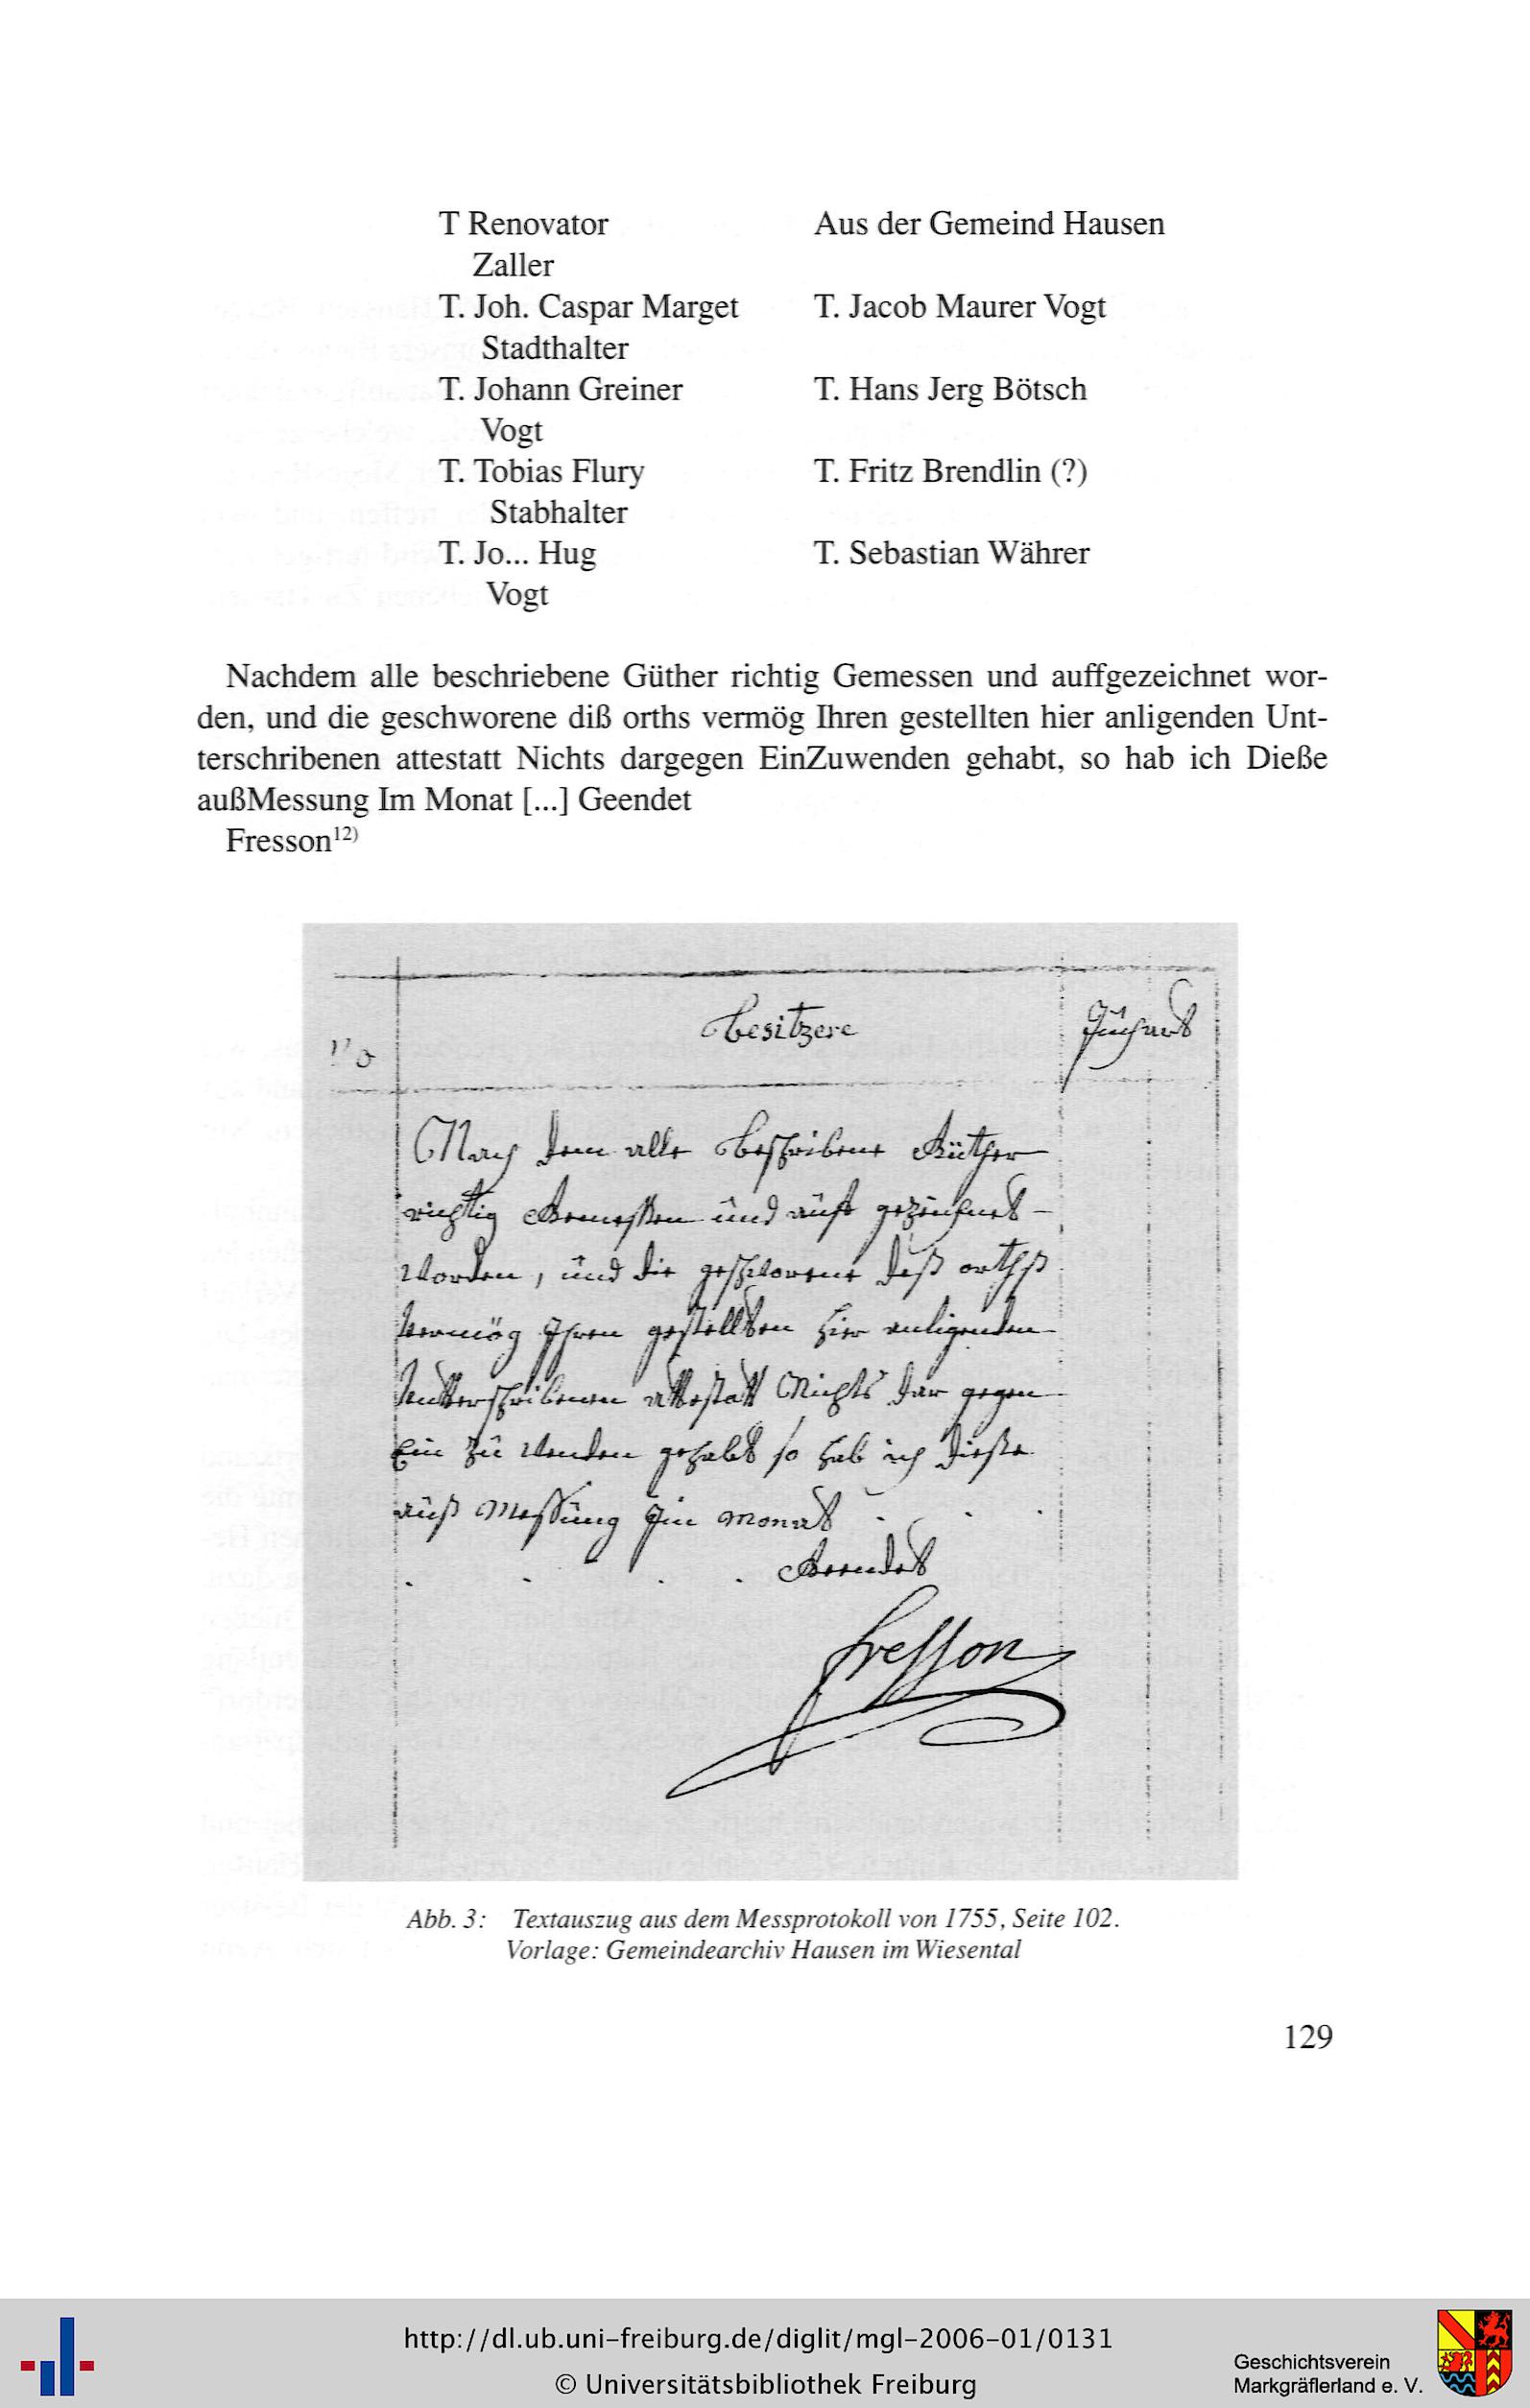 T Renovator Aus der Gemeind Hausen
Zaller
T. Joh. Caspar Marget T. Jacob Maurer Vogt
Stadthalter
T. Johann Greiner T. Hans Jerg Bötsch
Vogt
T. Tobias Flury T. Fritz Brendlin (?)
Stabhalter
T. Jo... Hug T. Sebastian Währer
Vogt
Nachdem alle beschriebene Güther richtig Gemessen und auffgezeichnet wor-
den, und die geschworene diß orths vermög Ihren gestellten hier anligenden Unt-
terschribenen attestatt Nichts dargegen EinZuwenden gehabt, so hab ich Dieße
außMessung Im Monat [...] Geendet
Fresson¹²⁾
No Besitzere Jüchart
Nach dem alle Beschribene Güther
richtig Gemessen und auff gezeichnet
worden, und die geschworene diß orths
vermög Ihren gestellten hier anligenden
Untterschribenen attestatt Nichts dar gegen
Ein zu wenden gehabt so hab ich dieße
auß Messung Im Monat . . .
. . . . Geendet
Fresson
Abb. 3: Textauszug aus dem Messprotokoll von 1755, Seite 102.
Vorlage: Gemeindearchiv Hausen im Wiesental
129
http://dl.ub.uni-freiburg.de/diglit/mgl-2006-01/0131
© Universitätsbibliothek Freiburg
Geschichtsverein
Markgräflerland e. V.